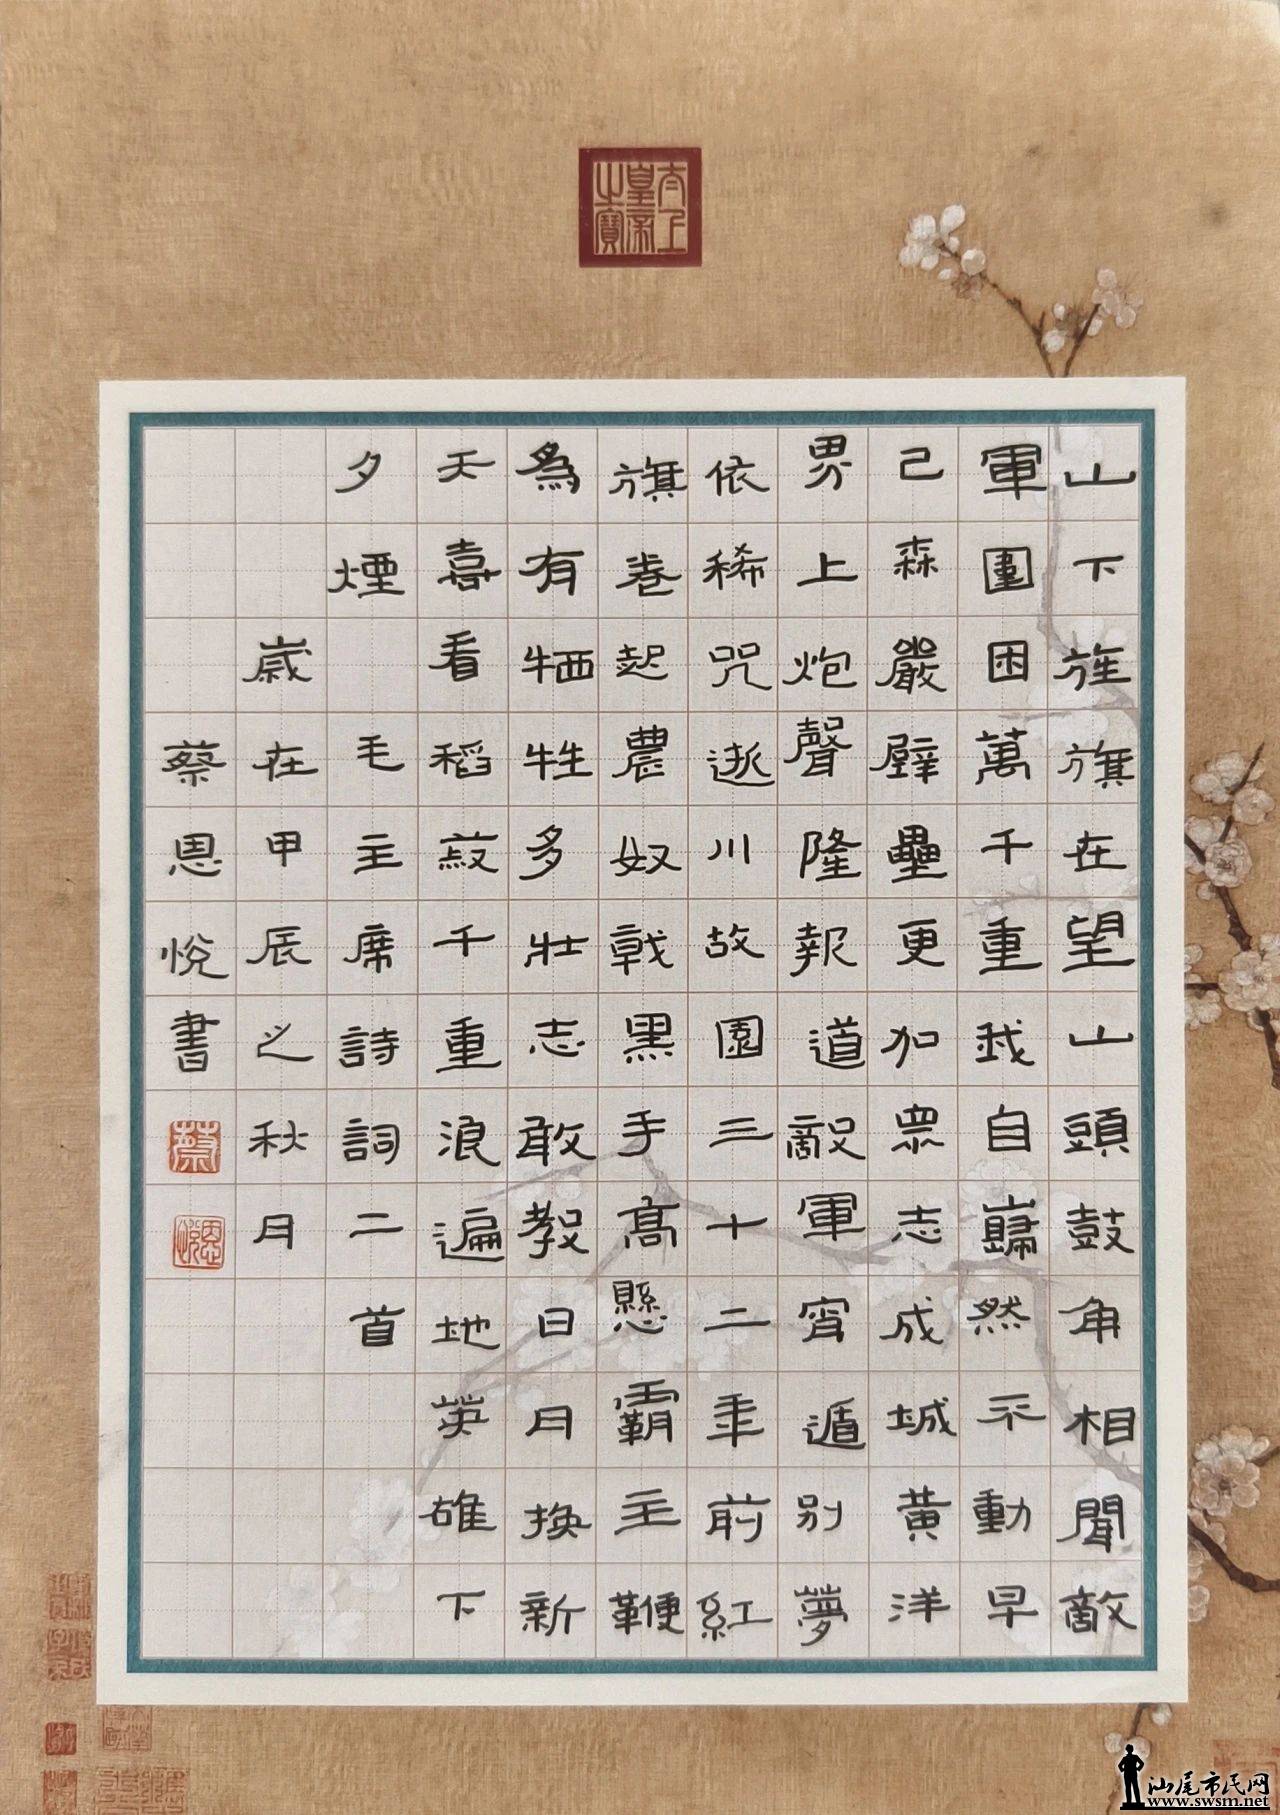 太上皇帝之寶
山下旌旗在望山頭鼓角相聞敵
軍圍困萬千重我自巋然不動早
己森嚴壁壘更加衆志成城黃洋
界上炮聲隆報道敵軍宵遁別夢
依稀咒逝川故園三十二年前紅
旗卷起農奴戟黑手高懸霸主鞭
為有牺牲多壯志敢教日月換新
天喜看稻菽千重浪遍地英雄下
夕煙 毛主席詩詞二首
歲在甲辰之秋月
蔡恩悅書
蔡
恩悅
汕尾市民网
www.swsm.net